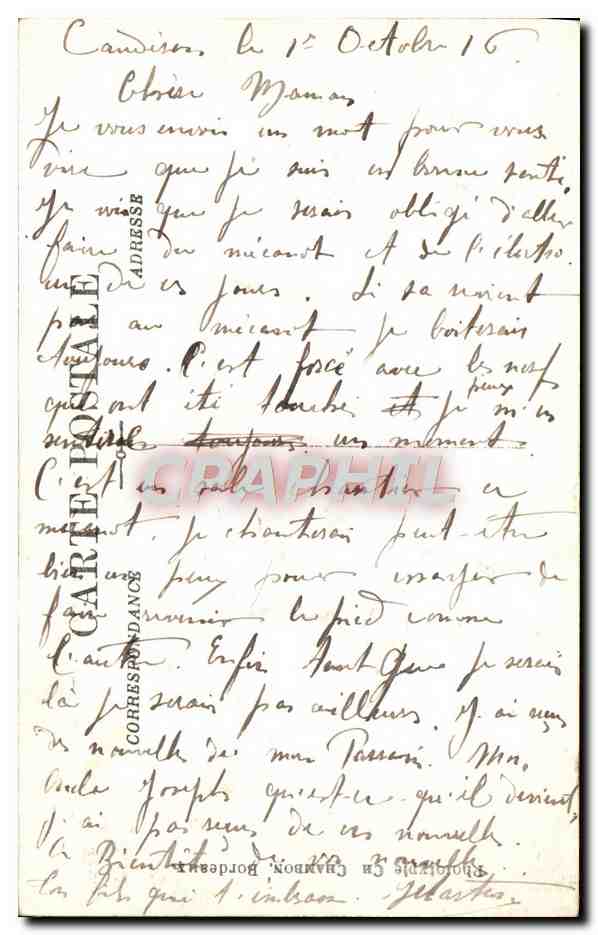 le 1r Octobre 16
Chère Maman
Je vous envoie un mot pour vous
dire que je suis en bonne santé.
Je crois que je serais obligé d'aller
faire du mécanot et de l'élect
un de ces jours. Si sa revient
pas au mécanot je boiterais
toujours. C'est forcé avec les nerfs
qui ont été touchés et je peux m'en
sentir toujours un moment.
C'est un sale ce
mecanot. je peut-être
bien un peux pour essayer de
faire revenir le pied comme
l'autre. Enfin tant que je serais
là je serais pas ailleurs. J'ai reçu
des nouvelles de mon Parrain. Mon
oncle Joseph qu'est-ce qu'il devient,
j'ai pas reçu de ces nouvelles.
A Bientôt de vos nouvelles
ton fils qui t'embrasse.
CARTE POSTALE
CORRESPONDANCE
ADRESSE
Phototypie Ch. CHAMBON, Bordeaux
CPAPHIL